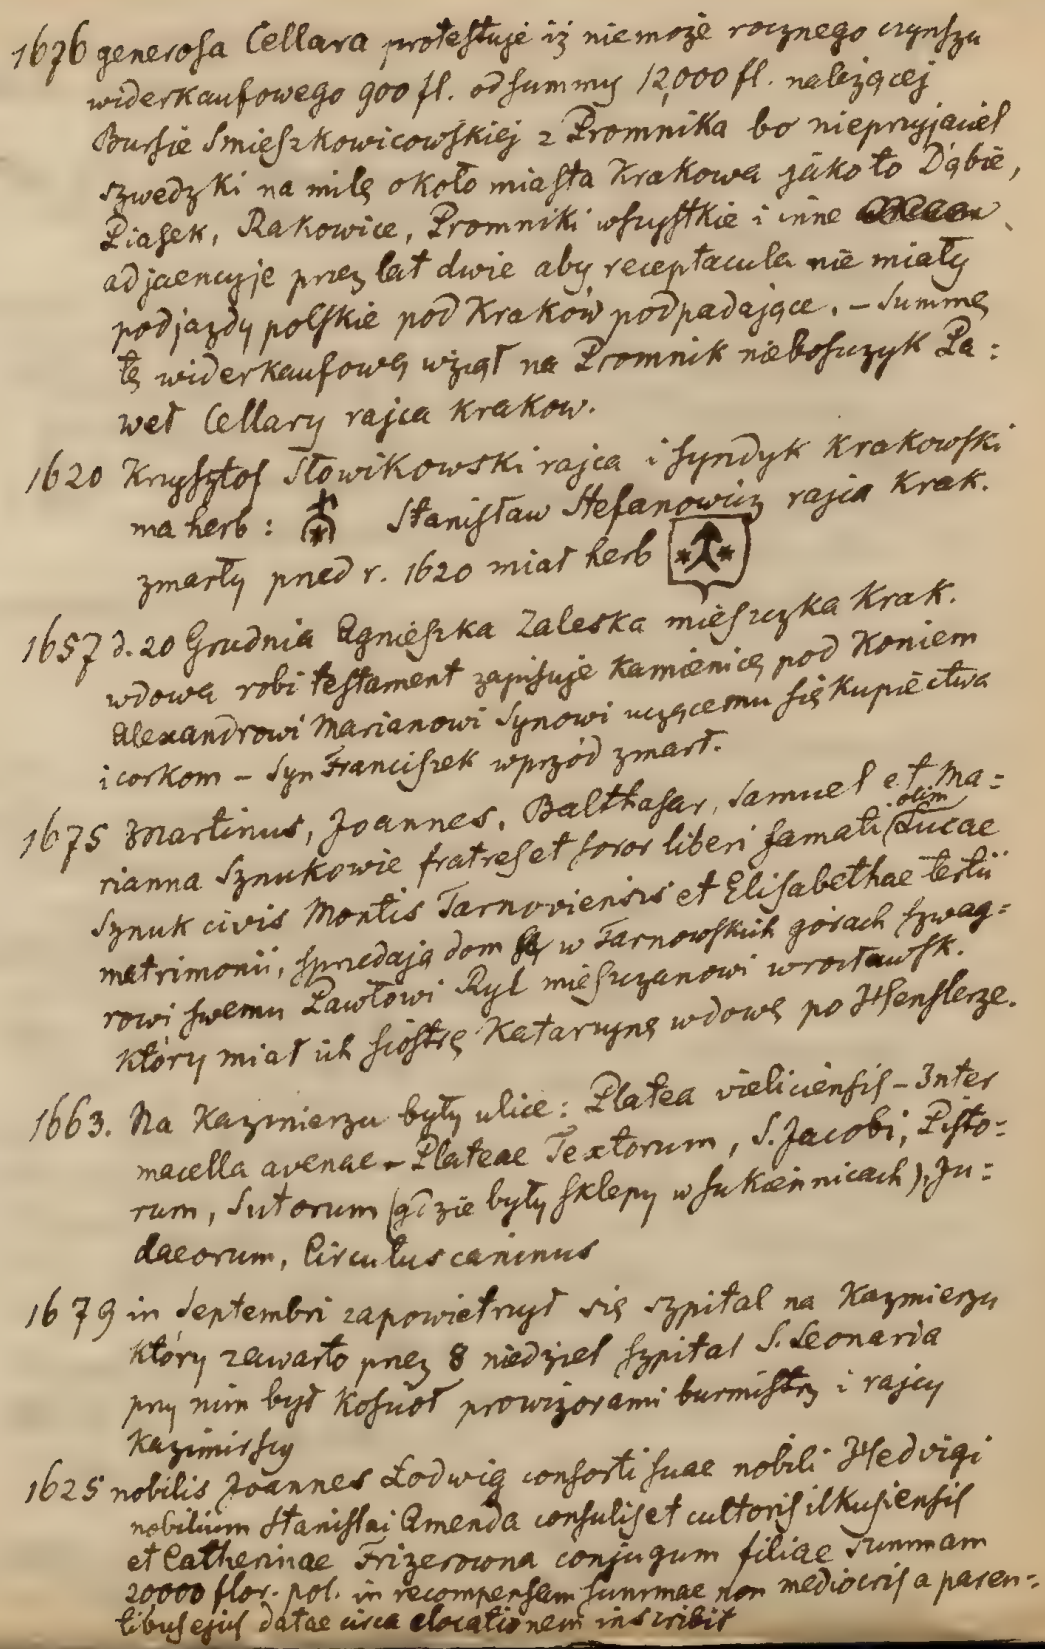 1676 generosa Cellara protestuje iż niemoże rocznego czynszu
widerkaufowego 900 fl. od summy 12,000 fl. należącej
Bursie Smieszkowicowskiej z Promnika bo nieprzyjaciel
szwedzki na milę około miasta Krakowa jako to Dąbie,
Piasek, Rakowice, Promniki wszystkie i inne
adjacencyje przez lat dwie aby receptacula nie miały
podjazdy polskie pod Kraków podpadające. – Summę
tę widerkaufową wziął na Promnik nieboszczyk Pa=
weł Cellary rajca krakow.
1620 Krysztof Słowikowski rajca i syndyk krakowski
ma herb: Stanisław Stefanowicz rajca Krak.
zmarły przed r. 1620 miał herb
1657 d. 20 Grudnia Agnieszka Zaleska mieszczka Krak.
wdowa robi testament zapisuje kamienicę pod Koniem
Alexandrowi Marianowi Synowi uczącemu się Kupiectwa
i corkom – Syn Franciszek wprzód zmarł.
1675 Martinus, Joannes, Balthasar, Samuel et Ma=
rianna Sznukowie fratres et soror liberi famati olim Lucae
Sznuk civis Montis Tarnoviensis et Elisabethae tertii
matrimonii, sprzedają dom w Tarnowskich górach szwag=
rowi swemu Pawłowi Ryl mieszczanowi wrocławsk.
który miał ich siostrę Katarzynę wdowę po Henslerze.
1663. Na Kazmierzu były ulice: Platea vieliciensis – Inter
macella avenae – Plateae Textorum, S. Jacobi, Pisto=
rum, Sutorum (gdzie były sklepy w sukiennicach), Ju=
daeorum, Circulus caninus
1679 in Septembri zapowietrzył się szpital na Kazmierzu
który zawarto przez 8 niedziel szpital S. Leonarda
przy nim był Kościoł prowizorami burmistrz i rajcy
Kazimirscy
1625 nobilis Joannes Lodwig consorti suae nobili Hedvigi
nobilium Stanislai Amenda consulis et cultoris ilkusiensis
et Catherinae Frizerowna conjugum filiae Summam
20,000 flor. pol. in recompensam summae non mediocris a paren=
tibus ejus datae circa elocationem inscribit